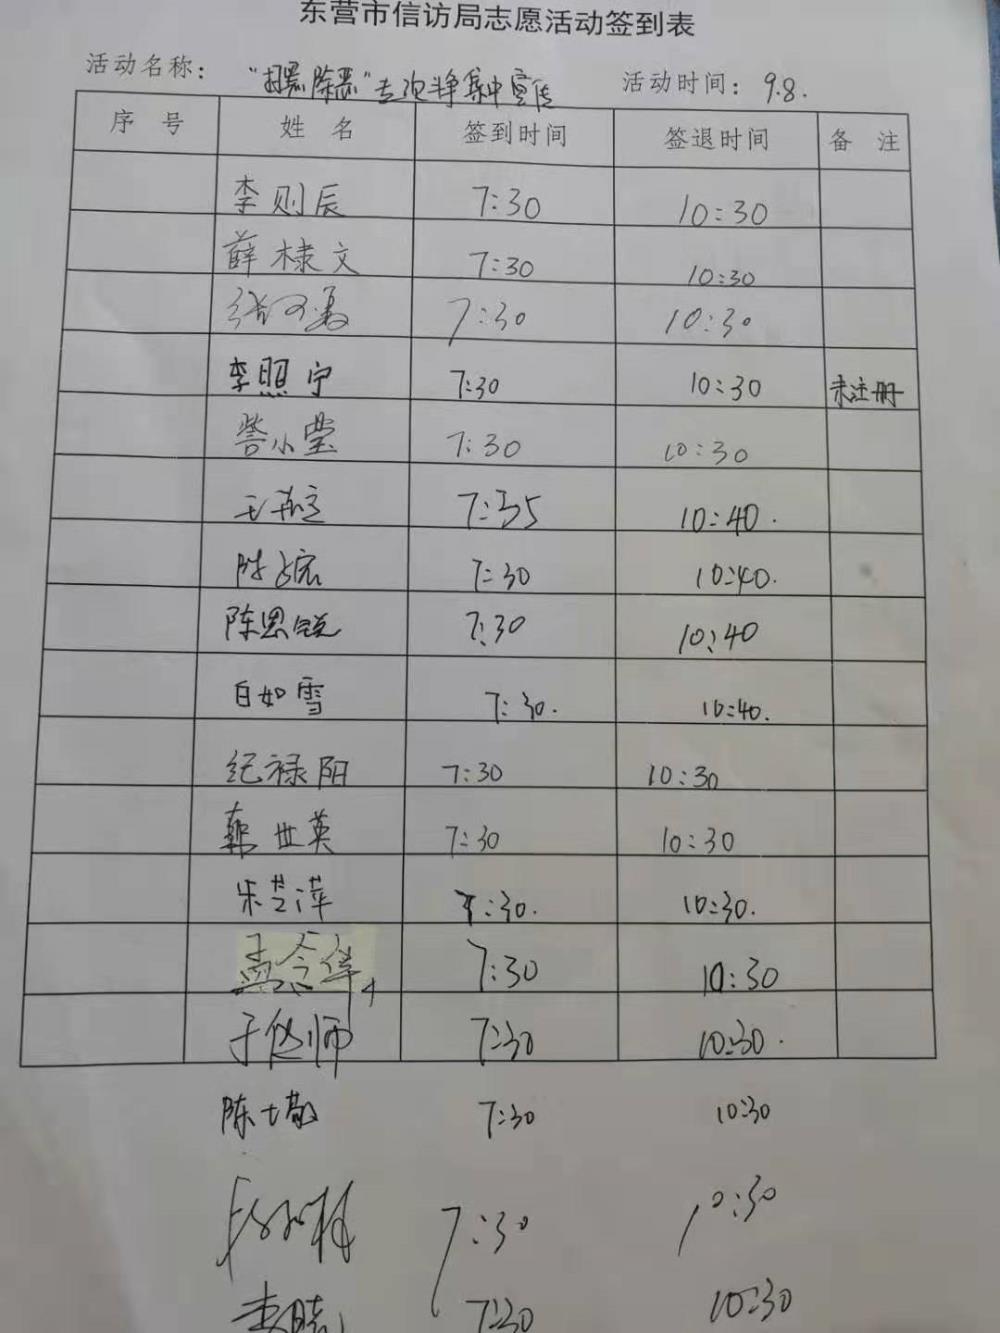 东营市信访局志愿活动签到表
活动名称： “扫黑除恶”专项斗争集中宣传 活动时间：9.8.
序 号 姓 名 签到时间 签退时间 备 注
李则辰 7:30 10:30
薛棣文 7:30 10:30
7:30 10:30
李照宁 7:30 10:30 未注册
訾小莹 7:30 10:30
7:35 10:40.
陈 7:30 10:40.
陈思锐 7:30 10:40
白如雪 7:30. 10:40.
纪禄阳 7:30 10:30
韩世英 7:30 10:30
朱芝萍 7:30. 10:30.
孟令伟 7:30 10:30
于 师 7:30 10:30.
陈士敬 7:30 10:30
7:30 10:30
李晓 7:30 10:30